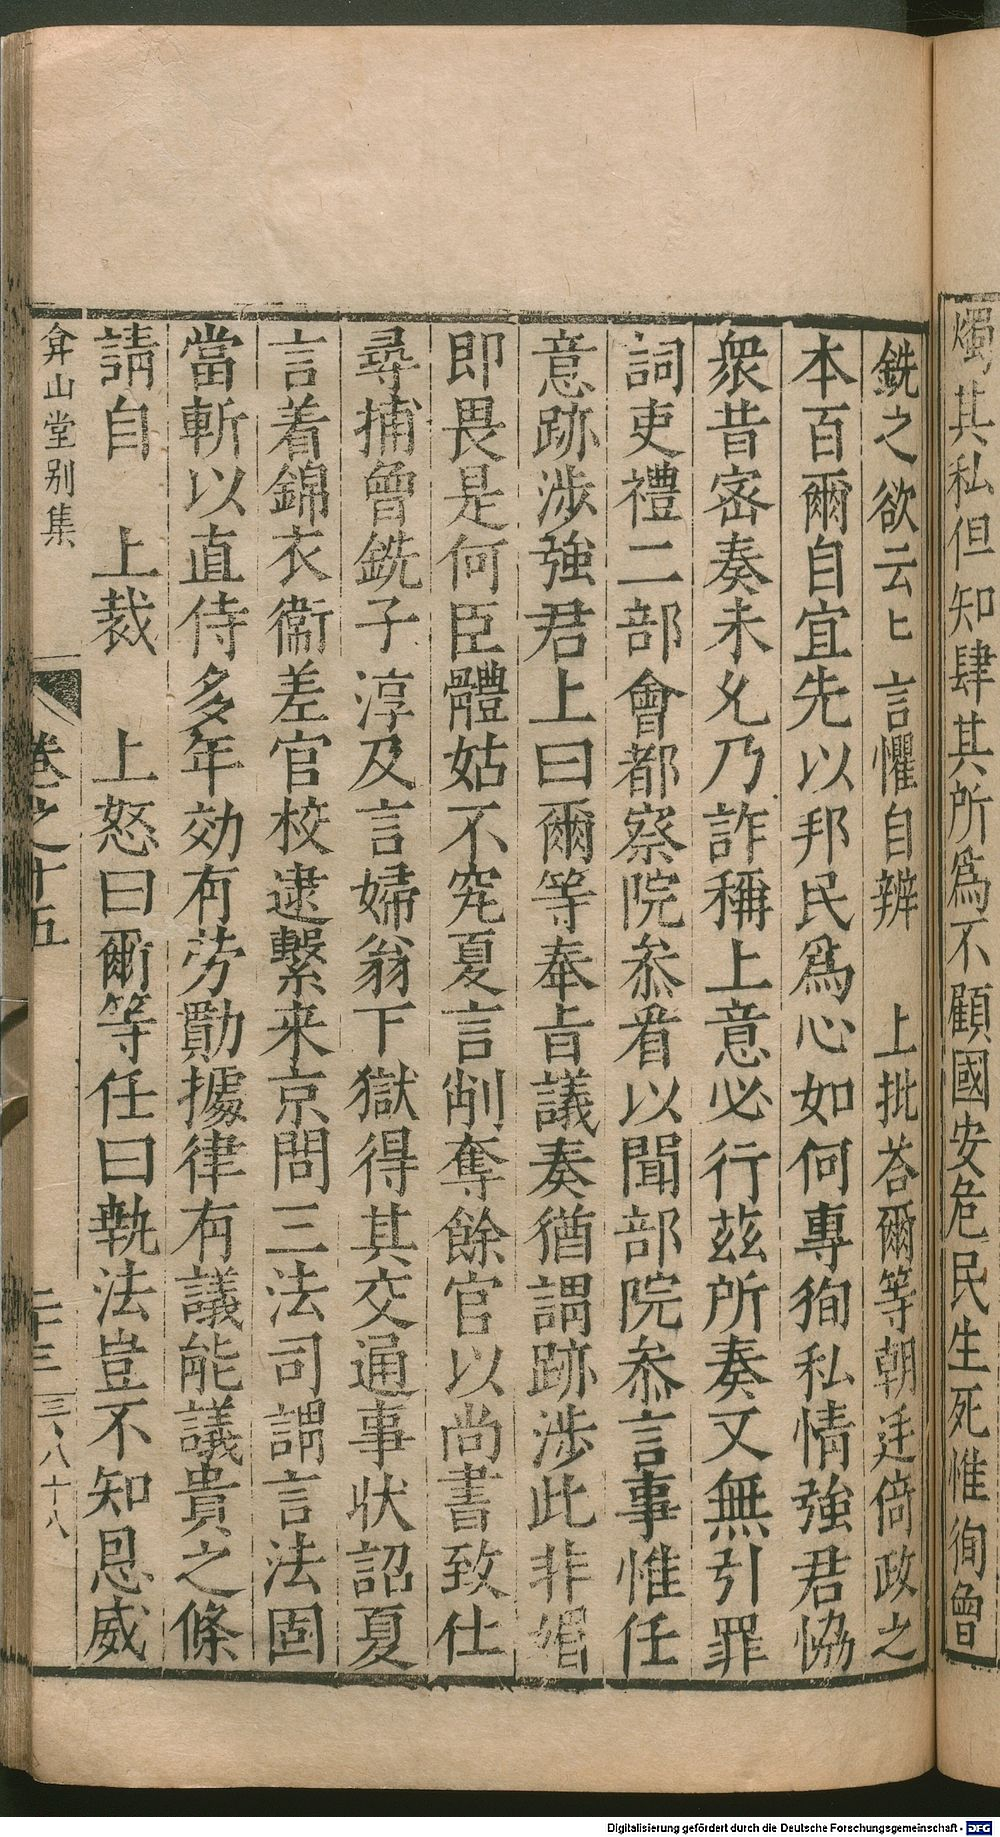 燭其私但知肆其所爲不顧國安危民生死惟徇曾
銑之欲云匕 言懼自辨 上批荅爾等朝廷倚政之
本百爾自宜先以邦民爲心如何專徇私情強君恊
衆昔宻奏未允乃詐稱上意必行兹所奏又無引罪
詞吏禮二部會都察院叅看以聞部院叅言事惟任
意跡涉強君上曰爾等奉旨議奏猶謂跡涉此非媢
即畏是何臣體姑不究夏言削奪餘官以尚書致仕
尋捕曾銑子淳及言婦翁下獄得其交通事状詔夏
言着錦衣衞差官校逮繫来京問三法司謂言法固
當斬以直侍多年効有劳勩據律有議能議貴之條
請自 上裁 上怒曰爾等任曰執法豈不知恩威
弇山堂别集
卷之十五
二十三
三八十八
Digitalisierung gefördert durch die Deutsche Forschungsgemeinschaft - DFG